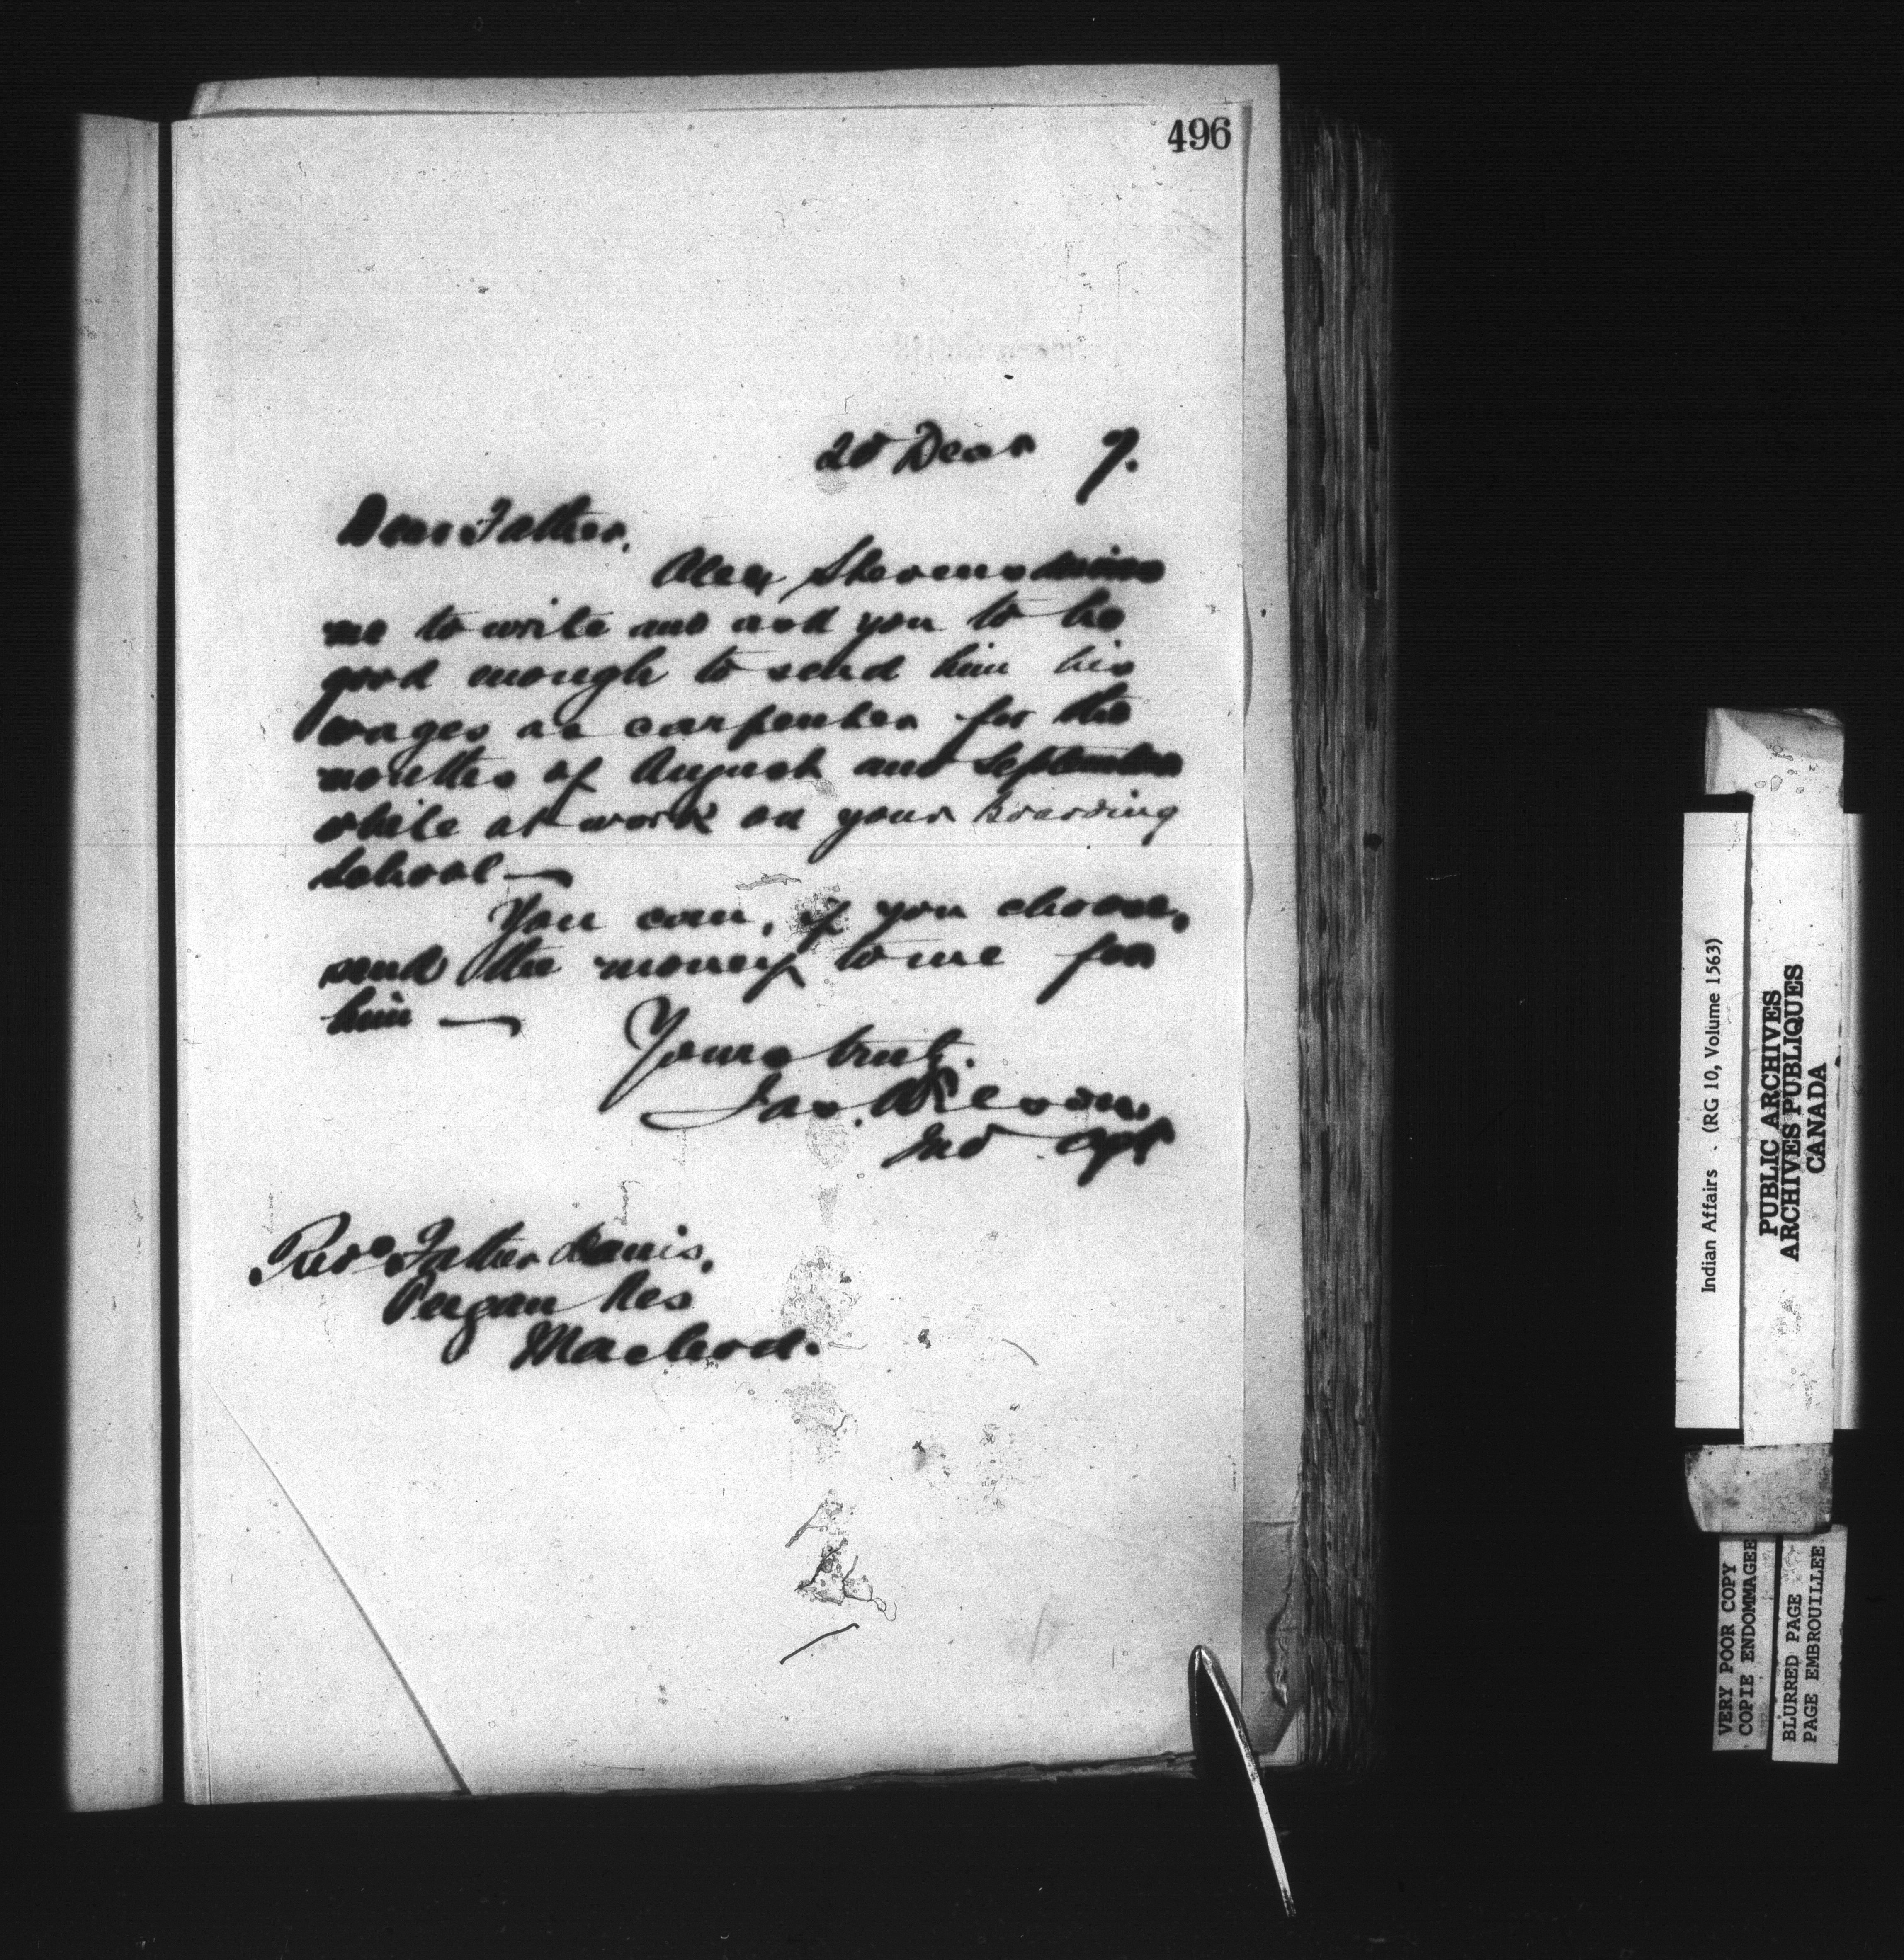 496
20 Decr 7.
Dear Father,
Alex
me to write and ask you to be
good enough to send him his
wages as carpenter for the
months of August and September
while at work on your boarding
school —
You can, if you choose,
send the money to me for
him —
Yours truly.
Jas. Wilson
Ind. Agt
Revd Father
Peigan Res
Macleod.
Indian Affairs . (RG 10, Volume 1563)
PUBLIC ARCHIVES
ARCHIVES PUBLIQUES
CANADA
VERY POOR COPY
COPIE ENDOMMAGEE
BLURRED PAGE
PAGE EMBROUILLEE